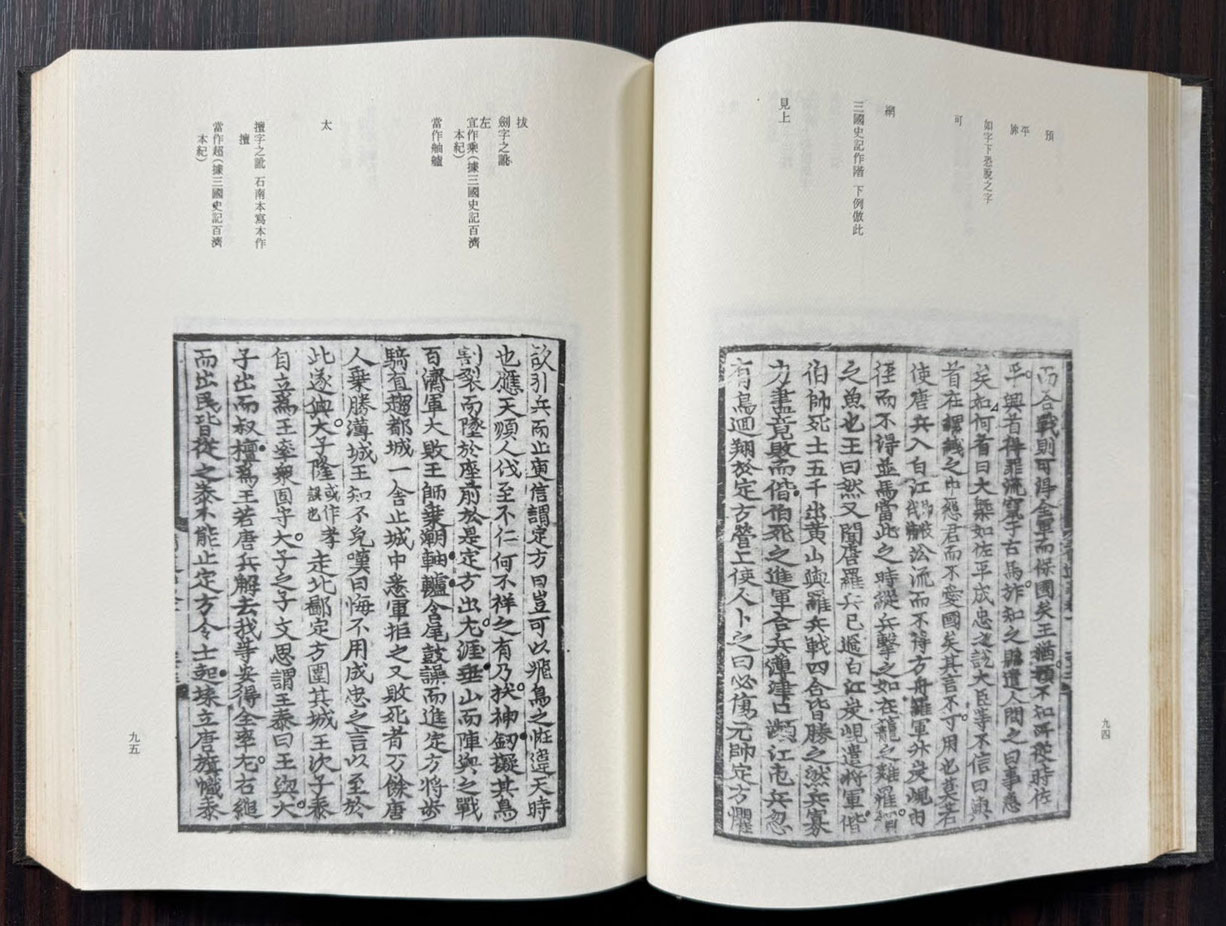 預
平
旀
如字下恐脫之字
可
網
三國史記作階 下例倣此
見上
而合戰則可得全軍而保國矣王猶預不知所從時佐
平興首得罪流竄于古馬旀知之縣遣人問之曰事急
矣如何首曰大槩如佐平成忠之說大臣等不信曰興
首在縲絏之中怨君而不愛國矣其言不可用也莫若
使唐兵入白江沿流而不得方舟羅軍升炭峴由
徑而不得並馬當此之時縱兵擊之如在籠之雞羅網
之魚也王曰然又聞唐羅兵已過白江炭峴遣將軍偕
伯帥死士五千出黃山與羅兵戰四合皆勝之然兵寡
力盡竟敗而偕伯死之進軍合兵薄津口瀕江屯兵忽
有鳥迴翔於定方營上使人卜之曰必傷元帥定方懼
九四
拔
劍字之譌
左
宜作乘(據三國史記百濟
本紀)
當作舳艫
太
擅字之訛 石南本寫本作
擅
當作超(據三國史記百濟
本紀)
欲引兵而止庾信謂定方曰豈可以飛鳥之怪違天時
也應天順人伐至不仁何不祥之有乃拔神釰擬其鳥
割裂而墜於座前於是定方出左涯垂山而陣與之戰
百濟軍大敗王師乗潮軸轤含尾鼓譟而進定方將步
騎直趨都城一舍止城中悉軍拒之又敗死者万餘唐
人乗勝薄城王知不免嘆曰悔不用成忠之言以至於
此遂與大子隆或作孝誤也走北鄙定方圍其城王次子泰
自立爲王率衆固守大子之子文思謂王泰曰王與大
子出而叔檀爲王若唐兵解去我等安得全率左右縋
而出民皆從之泰不能止定方令士起堞立唐旗幟泰
九五